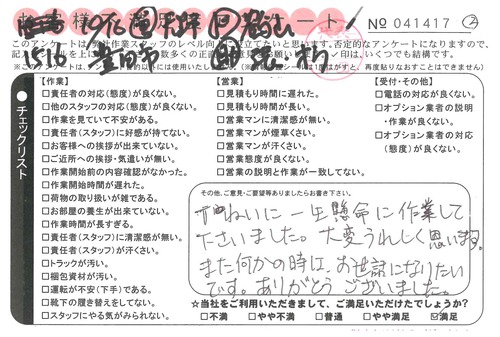 ート！ No 041417 ②
このアンケートは弊社作業スタッフのレベル向上に役立てたいと思います。否定的なアンケートになりますので、
1516 豊田市
【作業】
□責任者の対応(態度)が良くない。
□他のスタッフの対応(態度)が良くない。
□作業を見ていて不安がある。
□責任者(スタッフ)に好感が持てない。
□お客様への挨拶が出来ていない。
□ご近所への挨拶・気遣いが無い。
□作業開始前の内容確認がなかった。
□作業開始時間が遅れた。
□荷物の取り扱いが雑である。
□お部屋の養生が出来ていない。
□作業時間が長すぎる。
□責任者(スタッフ)に清潔感が無い。
□責任者(スタッフ)が汗くさい。
□トラックが汚い。
□梱包資材が汚い。
□運転が不安(下手)である。
□靴下の履き替えをしてない。
□スタッフにやる気がみられない。
【営業】
□見積もり時間に遅れた。
□見積もり時間が長い。
□営業マンに清潔感が無い。
□営業マンが煙草くさい。
□営業マンが汗くさい。
□営業態度が良くない。
□営業の説明と作業が一致してない。
【受付・その他】
□電話の対応が良くない。
□オプション業者の説明
・作業が良くない。
□オプション業者の対応
(態度)が良くない。
チェックリスト
その他、ご意見・ご要望等ありましたらお書き下さい。
ていねいに一生懸命に作業して
下さいました。大変うれしく思います。
また何かの時は、お世話になりたい
です。ありがとうございました。
☆当社をご利用いただきまして、ご満足いただけたでしょうか？
□不満 □やや不満 □普通 □やや満足 ☑満足